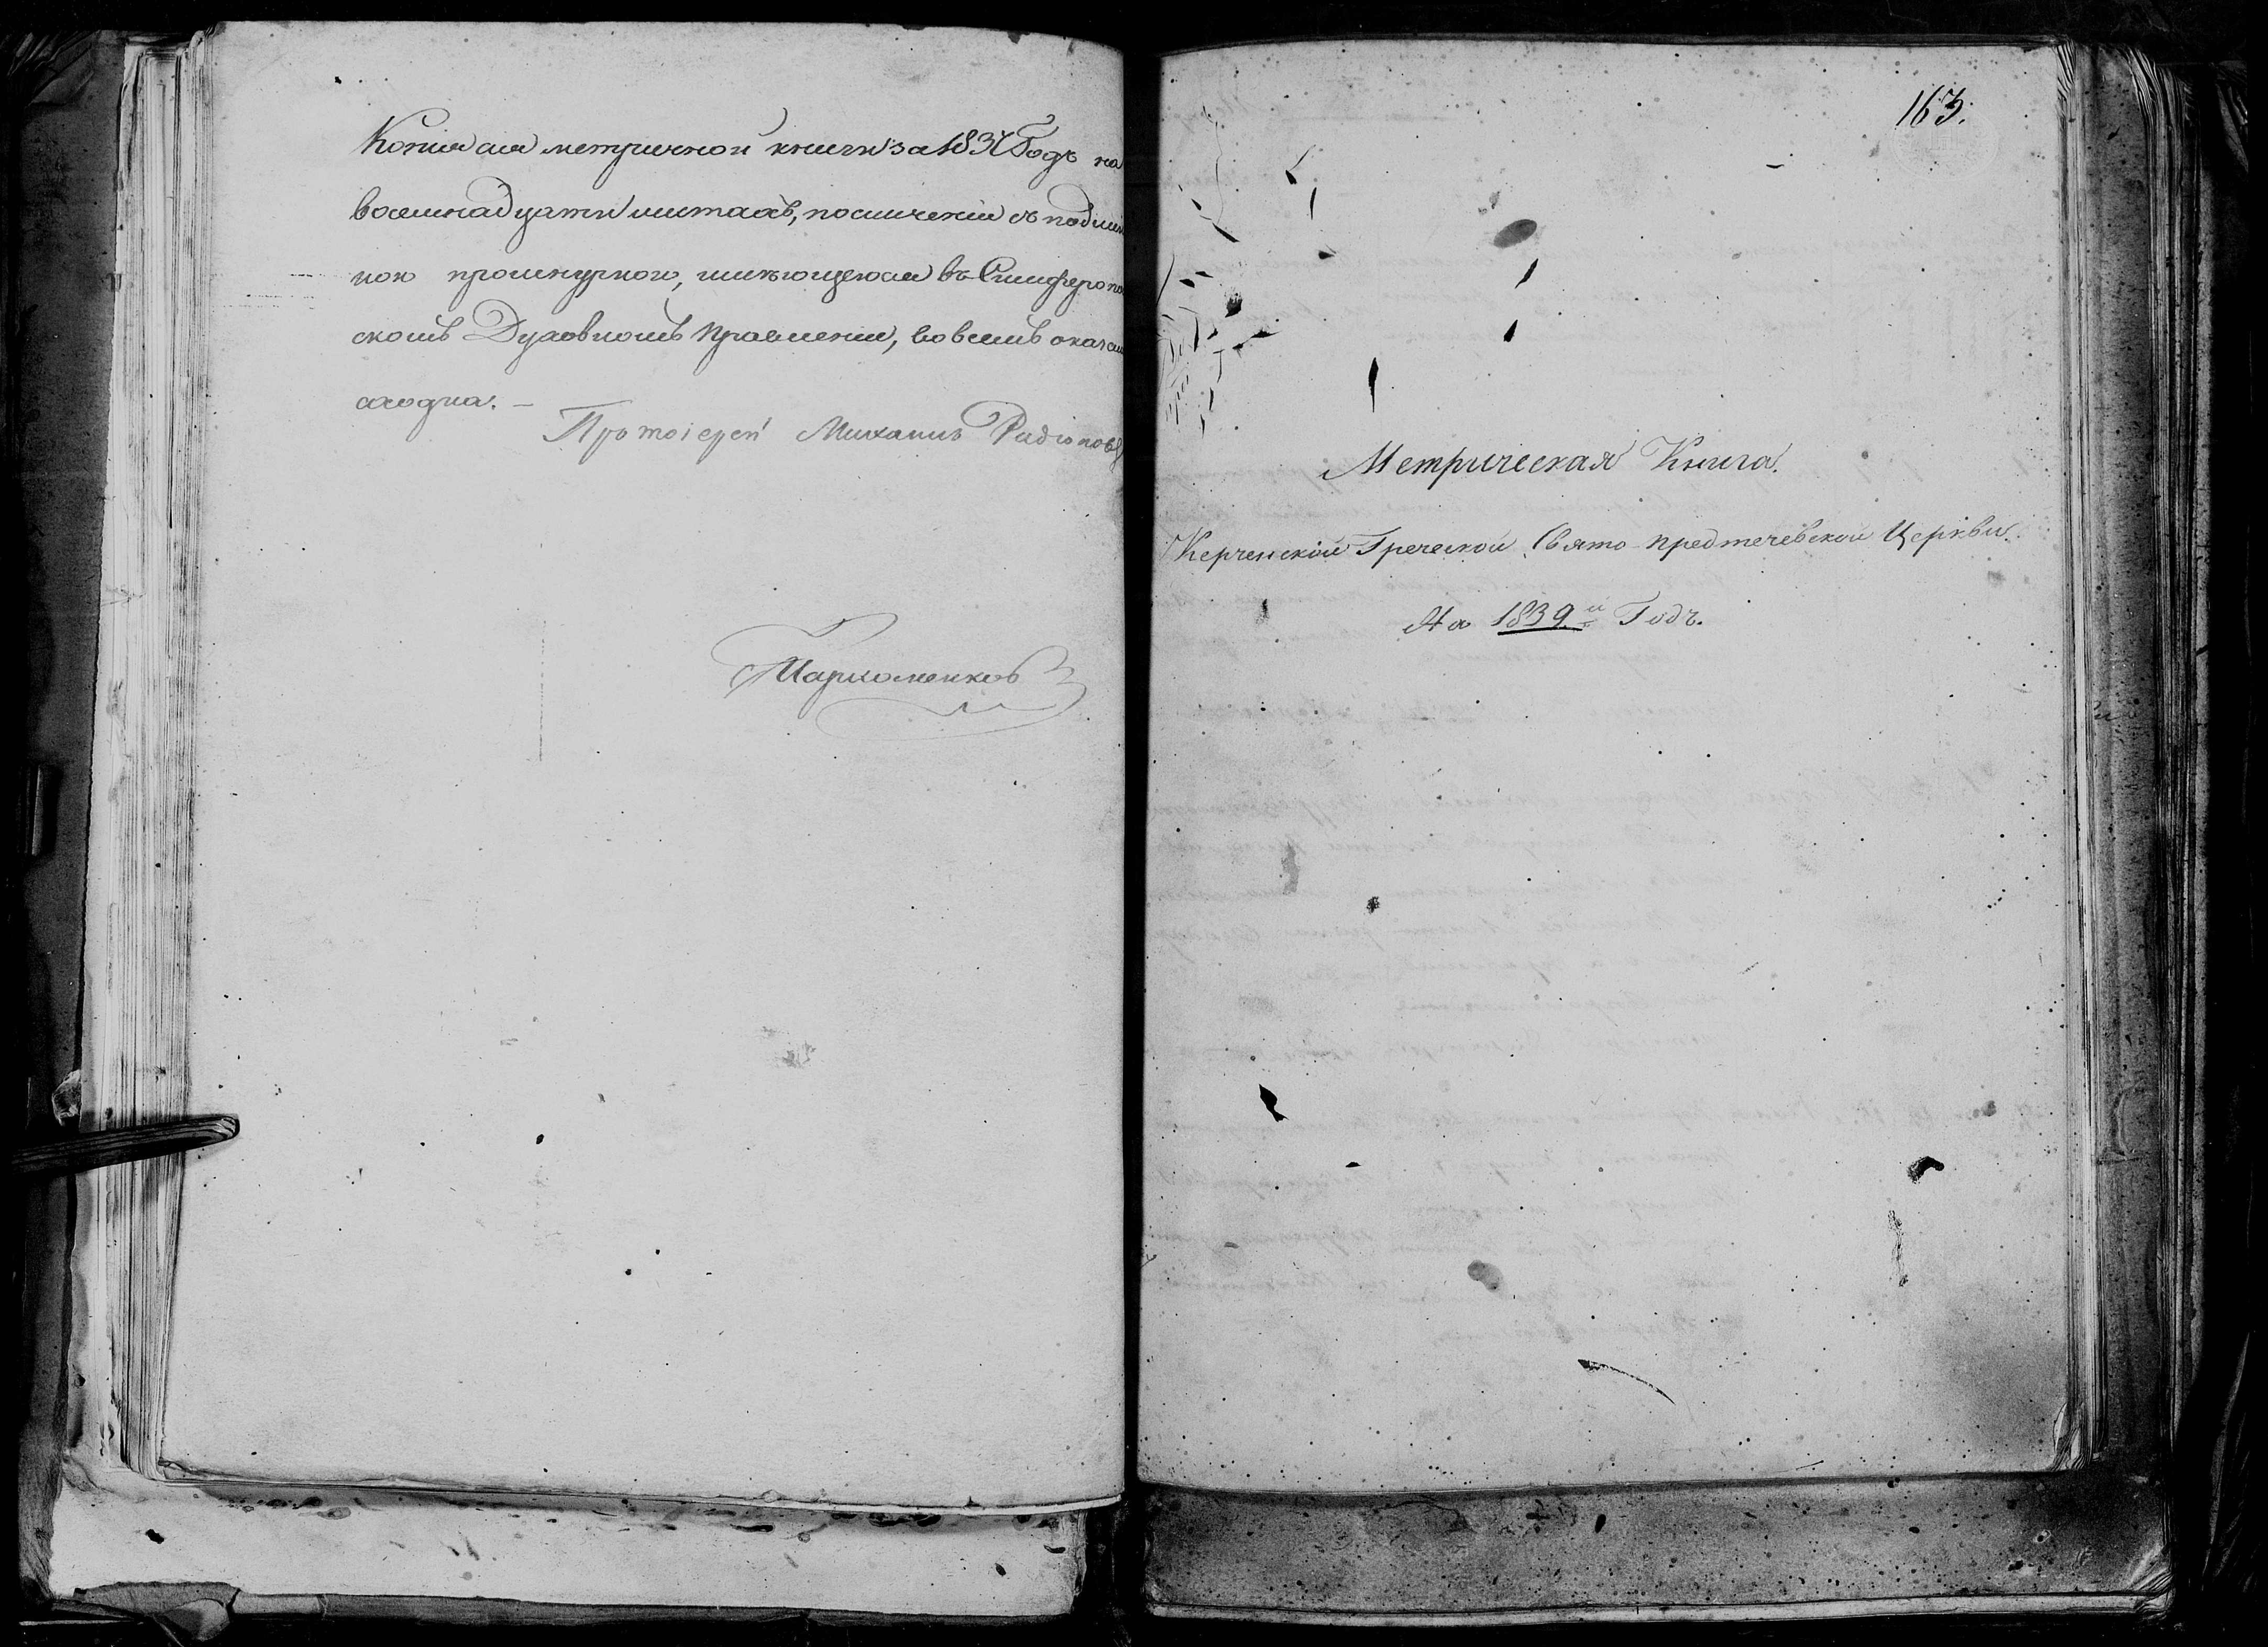 Копія сія метричной книги за 183 Годъ на
восемнадцати листахъ, по сличеніи съ подлин
ною прошнурною, имѣющеюся въ Симферопо
скомъ Духовномъ Правленіи, во всемъ оказал
сходна. —
Протоіерей Михаилъ Радіоновъ
Пархоменков
163.
Метрическая Книга.
Керченской Греческой Свято-Предтечевской Церкви.
На 1839.й Годъ.